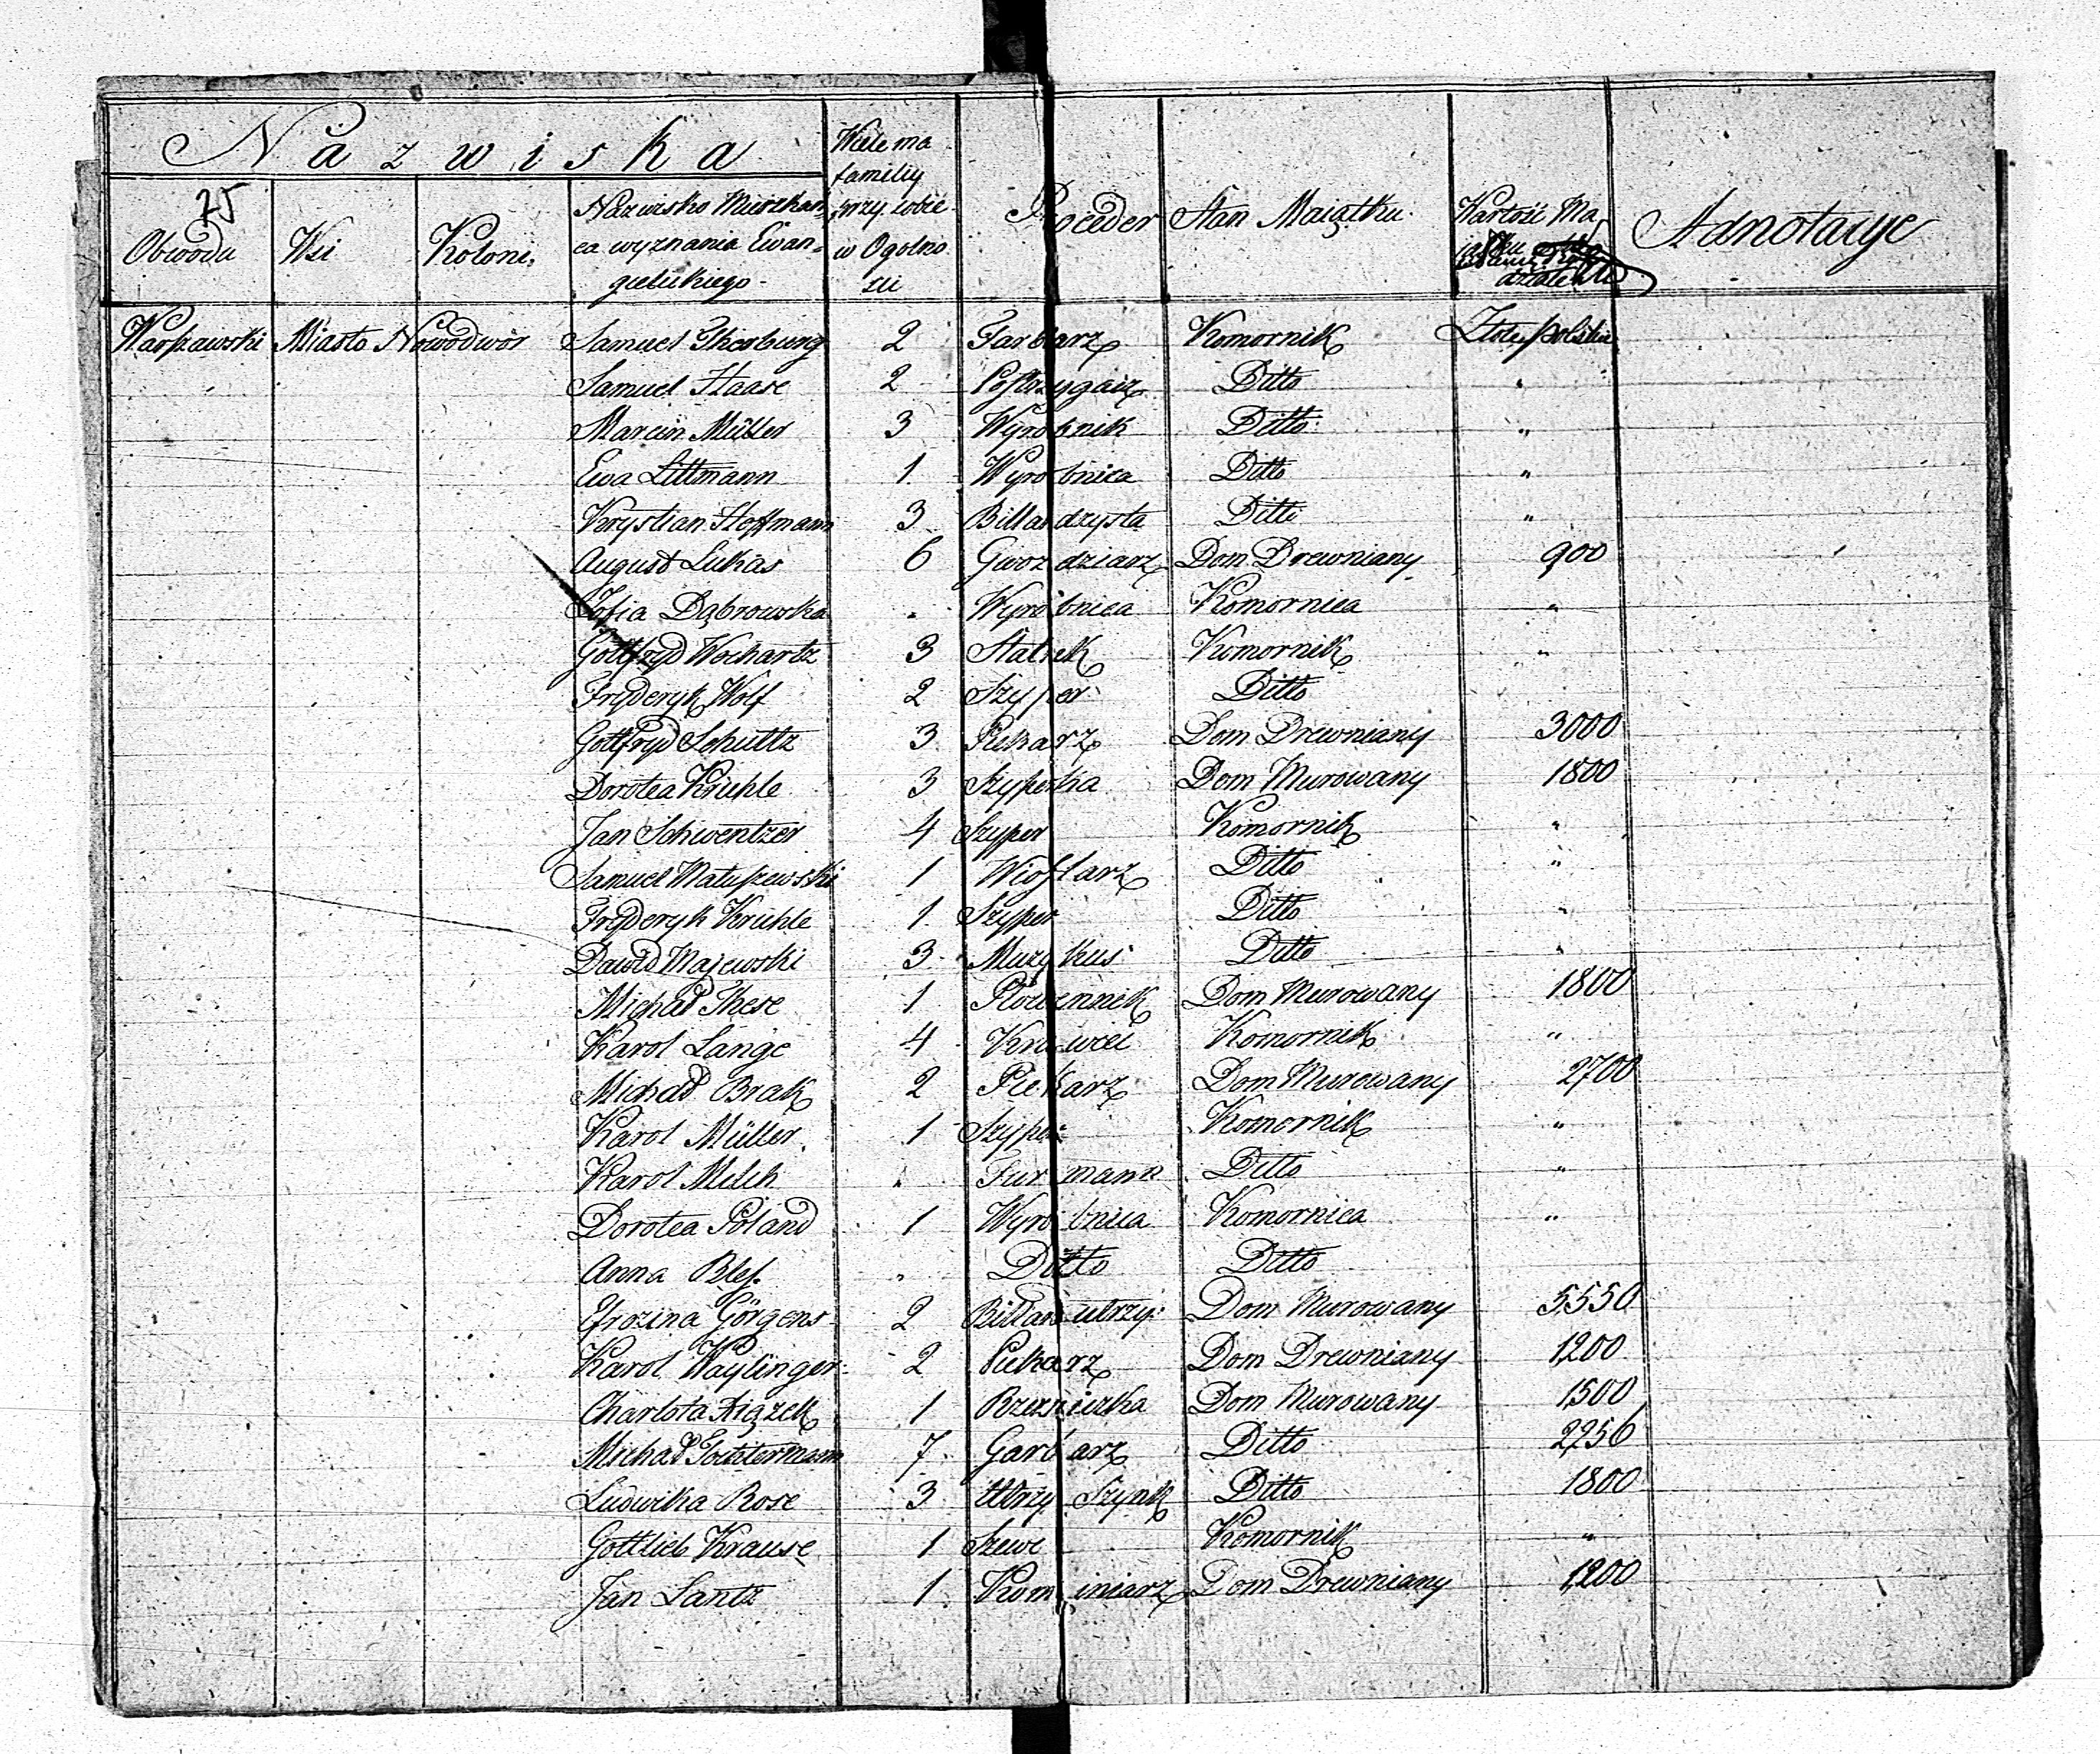 Nazwiska
25
Obwodu Wsi Koloni
Nazwisko Mieszkań
ca wyznania Ewan=
gielickiego
Wiele ma
familiy
przy sobie
w Ogolno
sci
Proceder
Stan Maiątku
Wartość Ma
jątku
Adnotacye
Warszawski Miasto Nowodwór Samuel 2 Farbiarz Komornik Złote polskie
Samuel Haase 2 Postrzygaiz Ditto "
Marcin Müller 3 Wyrobnik Ditto "
Ewa Littmann 1 Wyrobnica Ditto "
Krystian Hoffmann 3 Billardzysta Ditto "
August Lukas 6 Gwozdziarz Dom Drewniany 900
Zofia Dąbrowska " Wyrobnica Komornica "
Gottfryd Wochartz 3 Komornik "
Fryderyk Wolf 2 Szyper Ditto
Gottfryd Schultz 3 Piekarz Dom Drewniany 3000
Dorotea Krühle 3 Szyperka Dom Murowany 1800
Jan Schwentzer 4 Szyper Komornik "
Samuel Matuszewski 1 Wioslarz Ditto "
Fryderyk Krühle 1 Szyper Ditto "
Dawid Majewski 3 Muzykus Ditto "
Michał These 1 Dom Murowany 1800
Karol Lange 4 Krawiec Komornik "
Michał Brak 2 Piekarz Dom Murowany 2700
Karol Müller 1 Szyper Komornik "
Karol Milch " Furmann Ditto "
Dorotea Poland 1 Wyrobnica Komornica "
Anna Bless " Ditto Ditto
Efrozina Görgens 2 Billard utrzy: Dom Murowany 5550
Karol Waylinger 2 Piekarz Dom Drewniany 1200
Charlota 1 Rzezniczka Dom Murowany 1500
Michał Tochtermann 7 Garbarz Ditto 2256
Ludwika Rose 3 Utrzy Szynk Ditto 1800
Gottlieb Krause 1 Szewc Komornik "
Jan Lantz 1 Kominiarz Dom Drewniany 1200